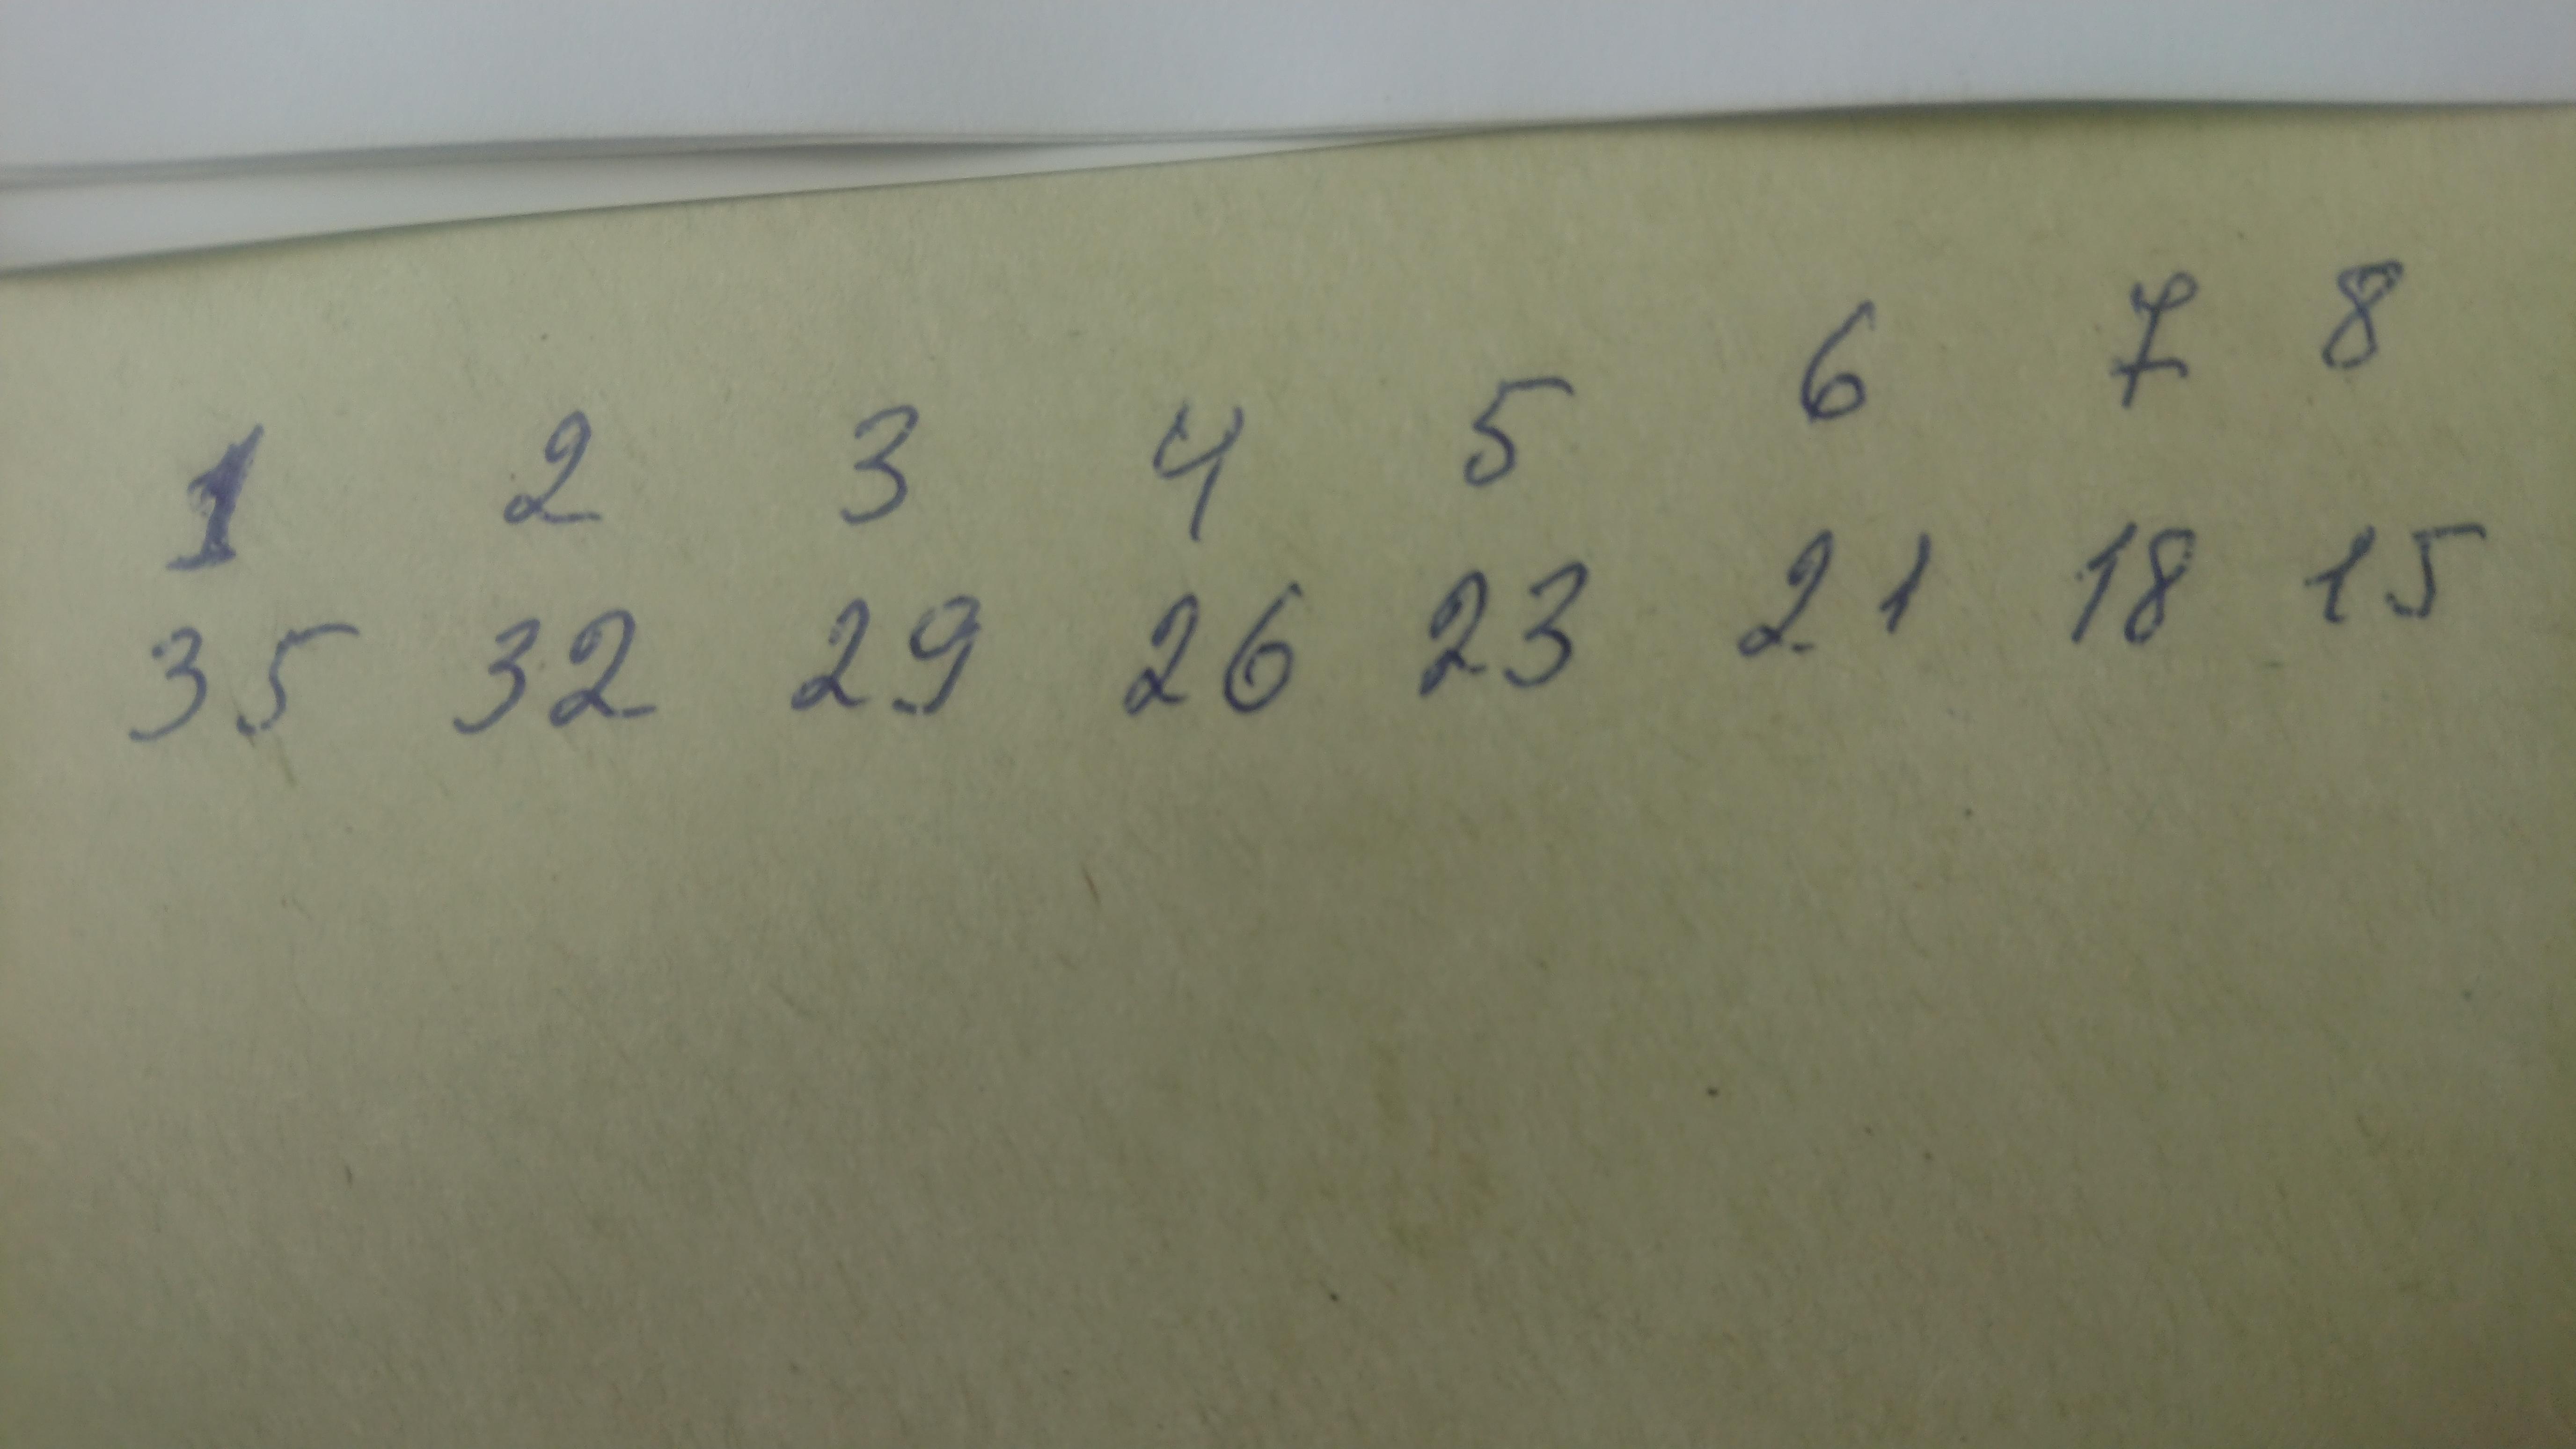 1 2 3 4 5 6 7 8
35 32 29 26 23 21 18 15